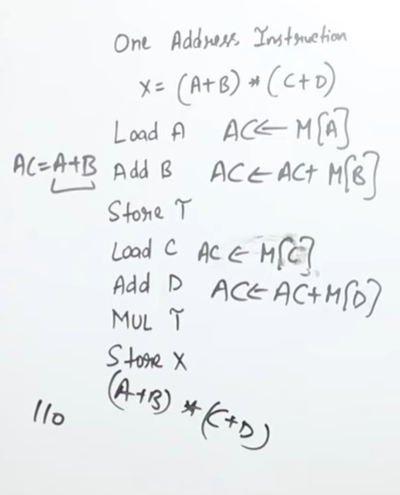 One Address Instruction
X = (A+B) * (C+D)
Load A AC ← M[A]
AC = A+B Add B AC ← AC + M[B]
Store T
Load C AC ← M[C]
Add D AC ← AC + M[D]
MUL T
Store X
(A+B) * (C+D)
110